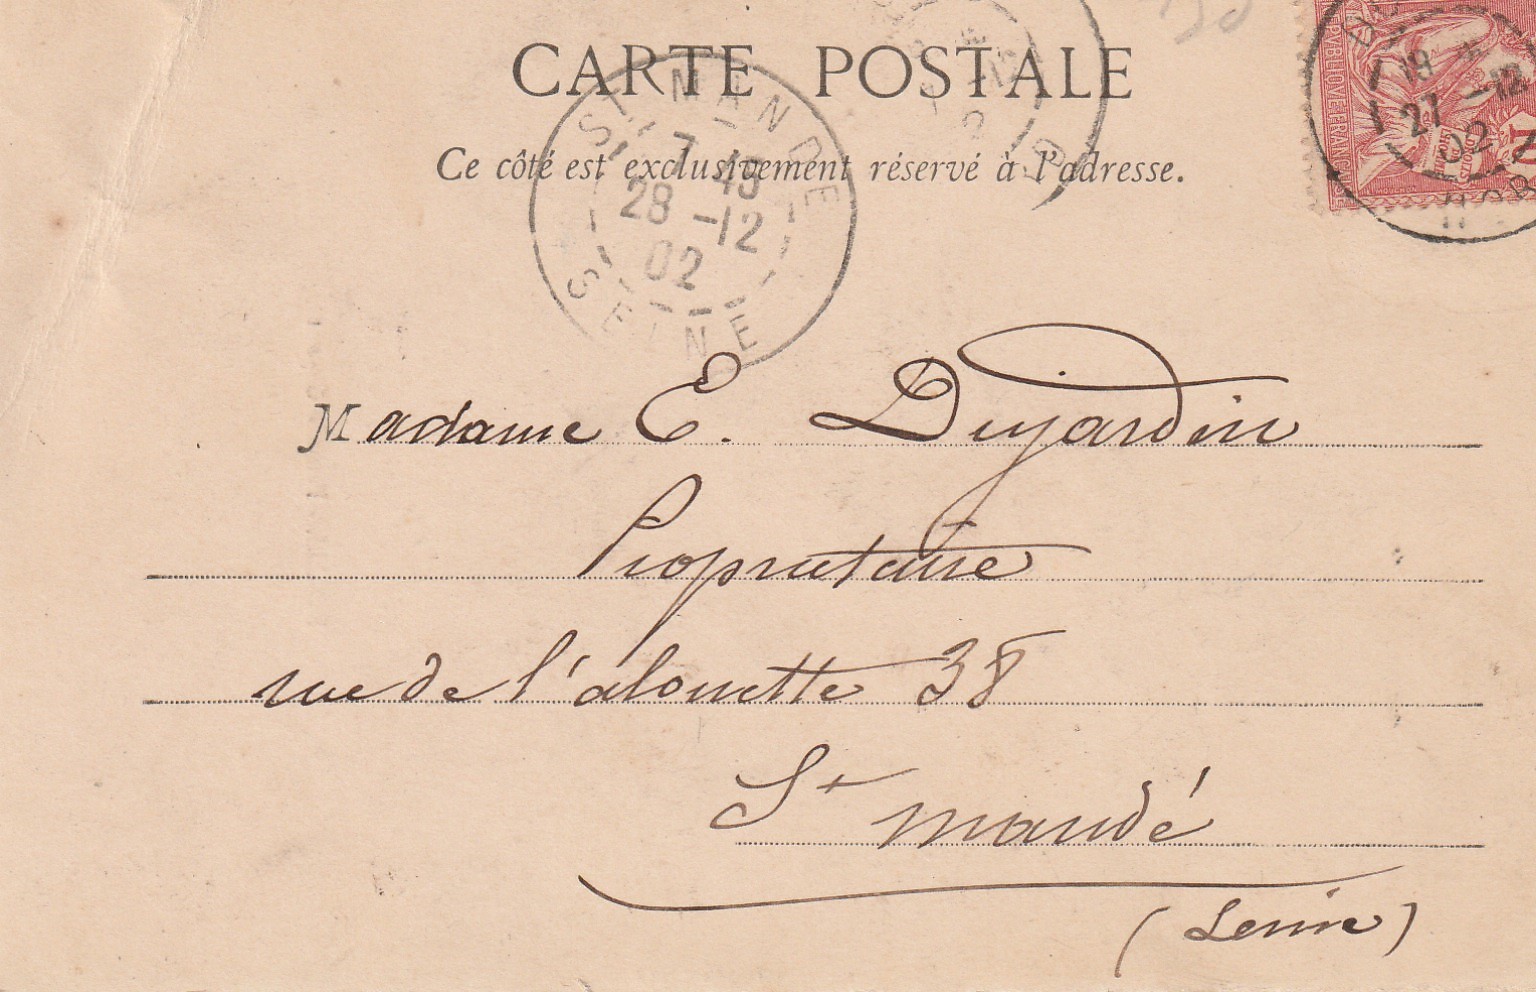 CARTE POSTALE
Ce côté est exclusivement réservé à l'adresse.
ST MANDE
7 45
28 -12
02
SEINE
18
27 -12
02
Madame E. Dujardin
Propriétaire
rue de l'alouette 38
St mandé
(Seine)